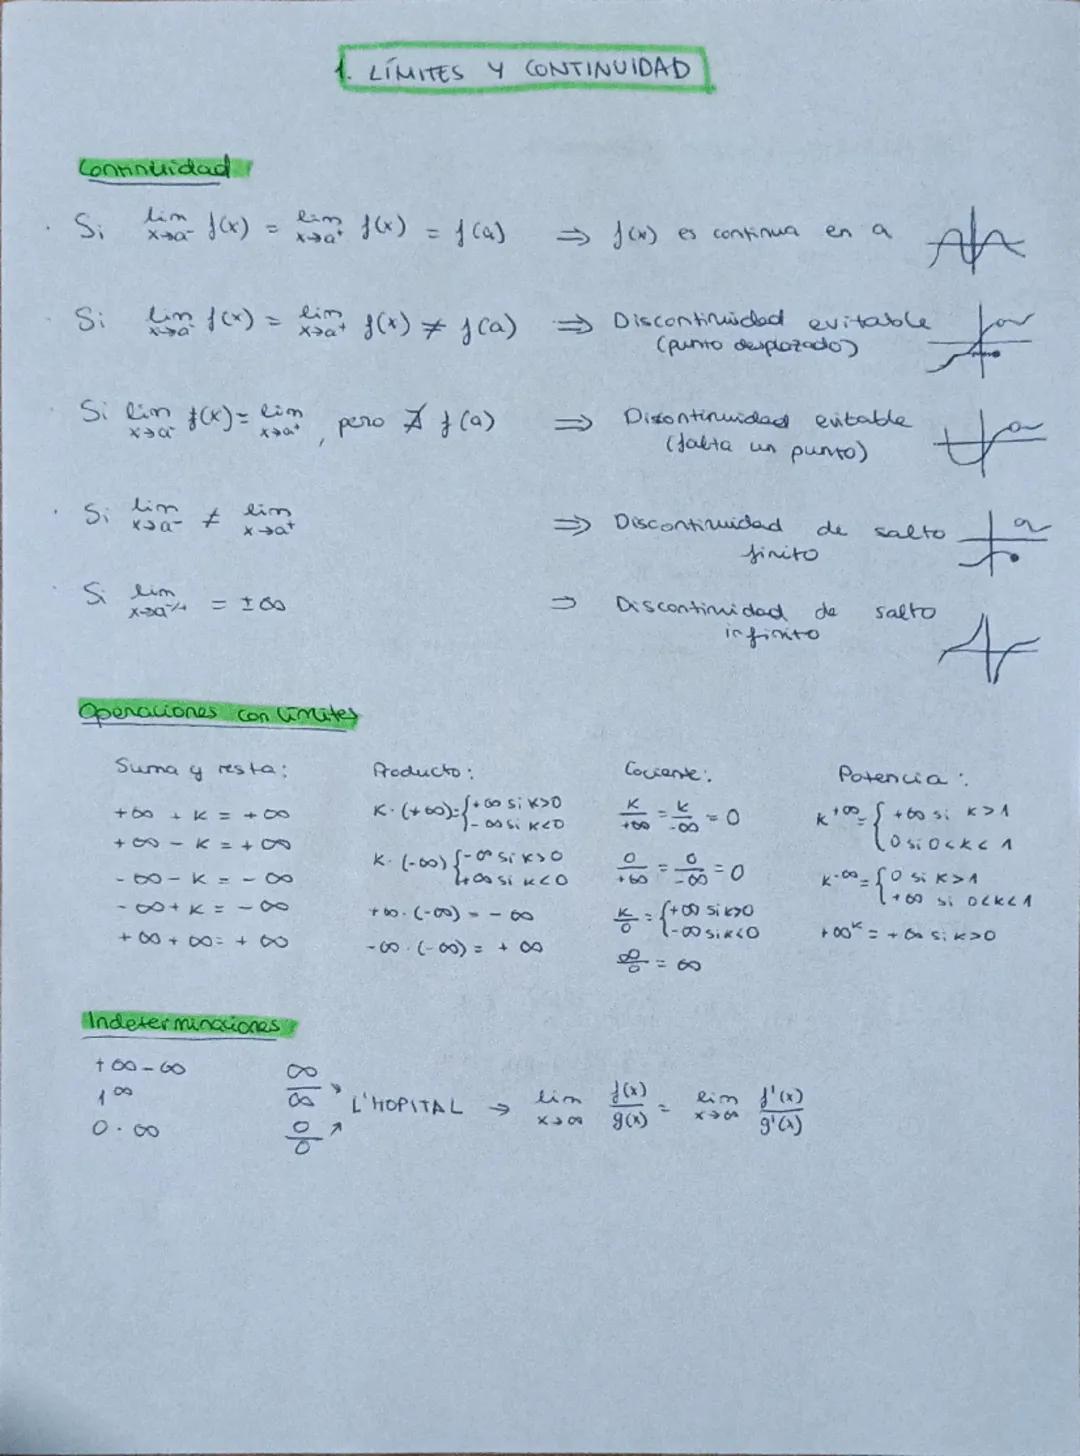 1. LÍMITES Y CONTINUIDAD
Continuidad
· Si lim x→a⁻ f(x) = lim x→a⁺ f(x) = f(a) ⇒ f(x) es continua en a
· Si lim x→a⁻ f(x) = lim x→a⁺ f(x) ≠ f(a) ⇒ Discontinuidad evitable
(punto desplazado)
· Si lim x→a⁻ f(x) = lim x→a⁺, pero ∄ f(a) ⇒ Discontinuidad evitable
(falta un punto)
· Si lim x→a⁻ ≠ lim x→a⁺ ⇒ Discontinuidad de salto
finito
· Si lim x→a⁻/⁺ = ±∞ ⇒ Discontinuidad de salto
infinito
Operaciones con límites
Suma y resta:
+∞ + K = +∞
+∞ - K = +∞
-∞ - K = -∞
-∞ + K = -∞
+∞ + ∞ = +∞
Producto:
K · (+∞) = { +∞ si K>0
-∞ si K<0
K · (-∞) { -∞ si K>0
+∞ si K<0
+∞ · (-∞) = -∞
-∞ · (-∞) = +∞
Cociente:
K/+∞ = K/-∞ = 0
0/+∞ = 0/-∞ = 0
K/0 = { +∞ si K>0
-∞ si K<0
∞/0 = ∞
Potencia:
K^+∞ = { +∞ si K>1
0 si 0<K<1
K^-∞ = { 0 si K>1
+∞ si 0<K<1
+∞^K = +∞ si K>0
Indeterminaciones
+∞-∞
1^∞
0·∞
∞/∞
0/0
L'HOPITAL → lim x→∞ f(x)/g(x) = lim x→∞ f'(x)/g'(x)